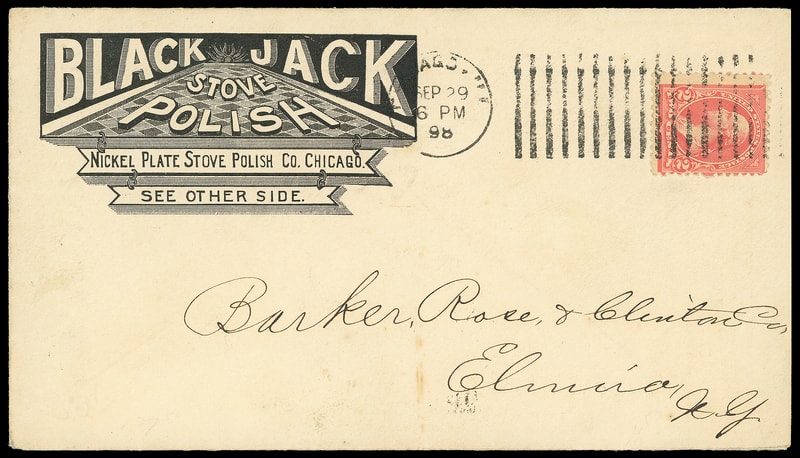 BLACK JACK
STOVE
POLISH
NICKEL PLATE STOVE POLISH CO. CHICAGO.
SEE OTHER SIDE.
SEP 29
6 PM
98
2 2
Barker, Rose, & Clinton Co,
Elmira,
N.Y.